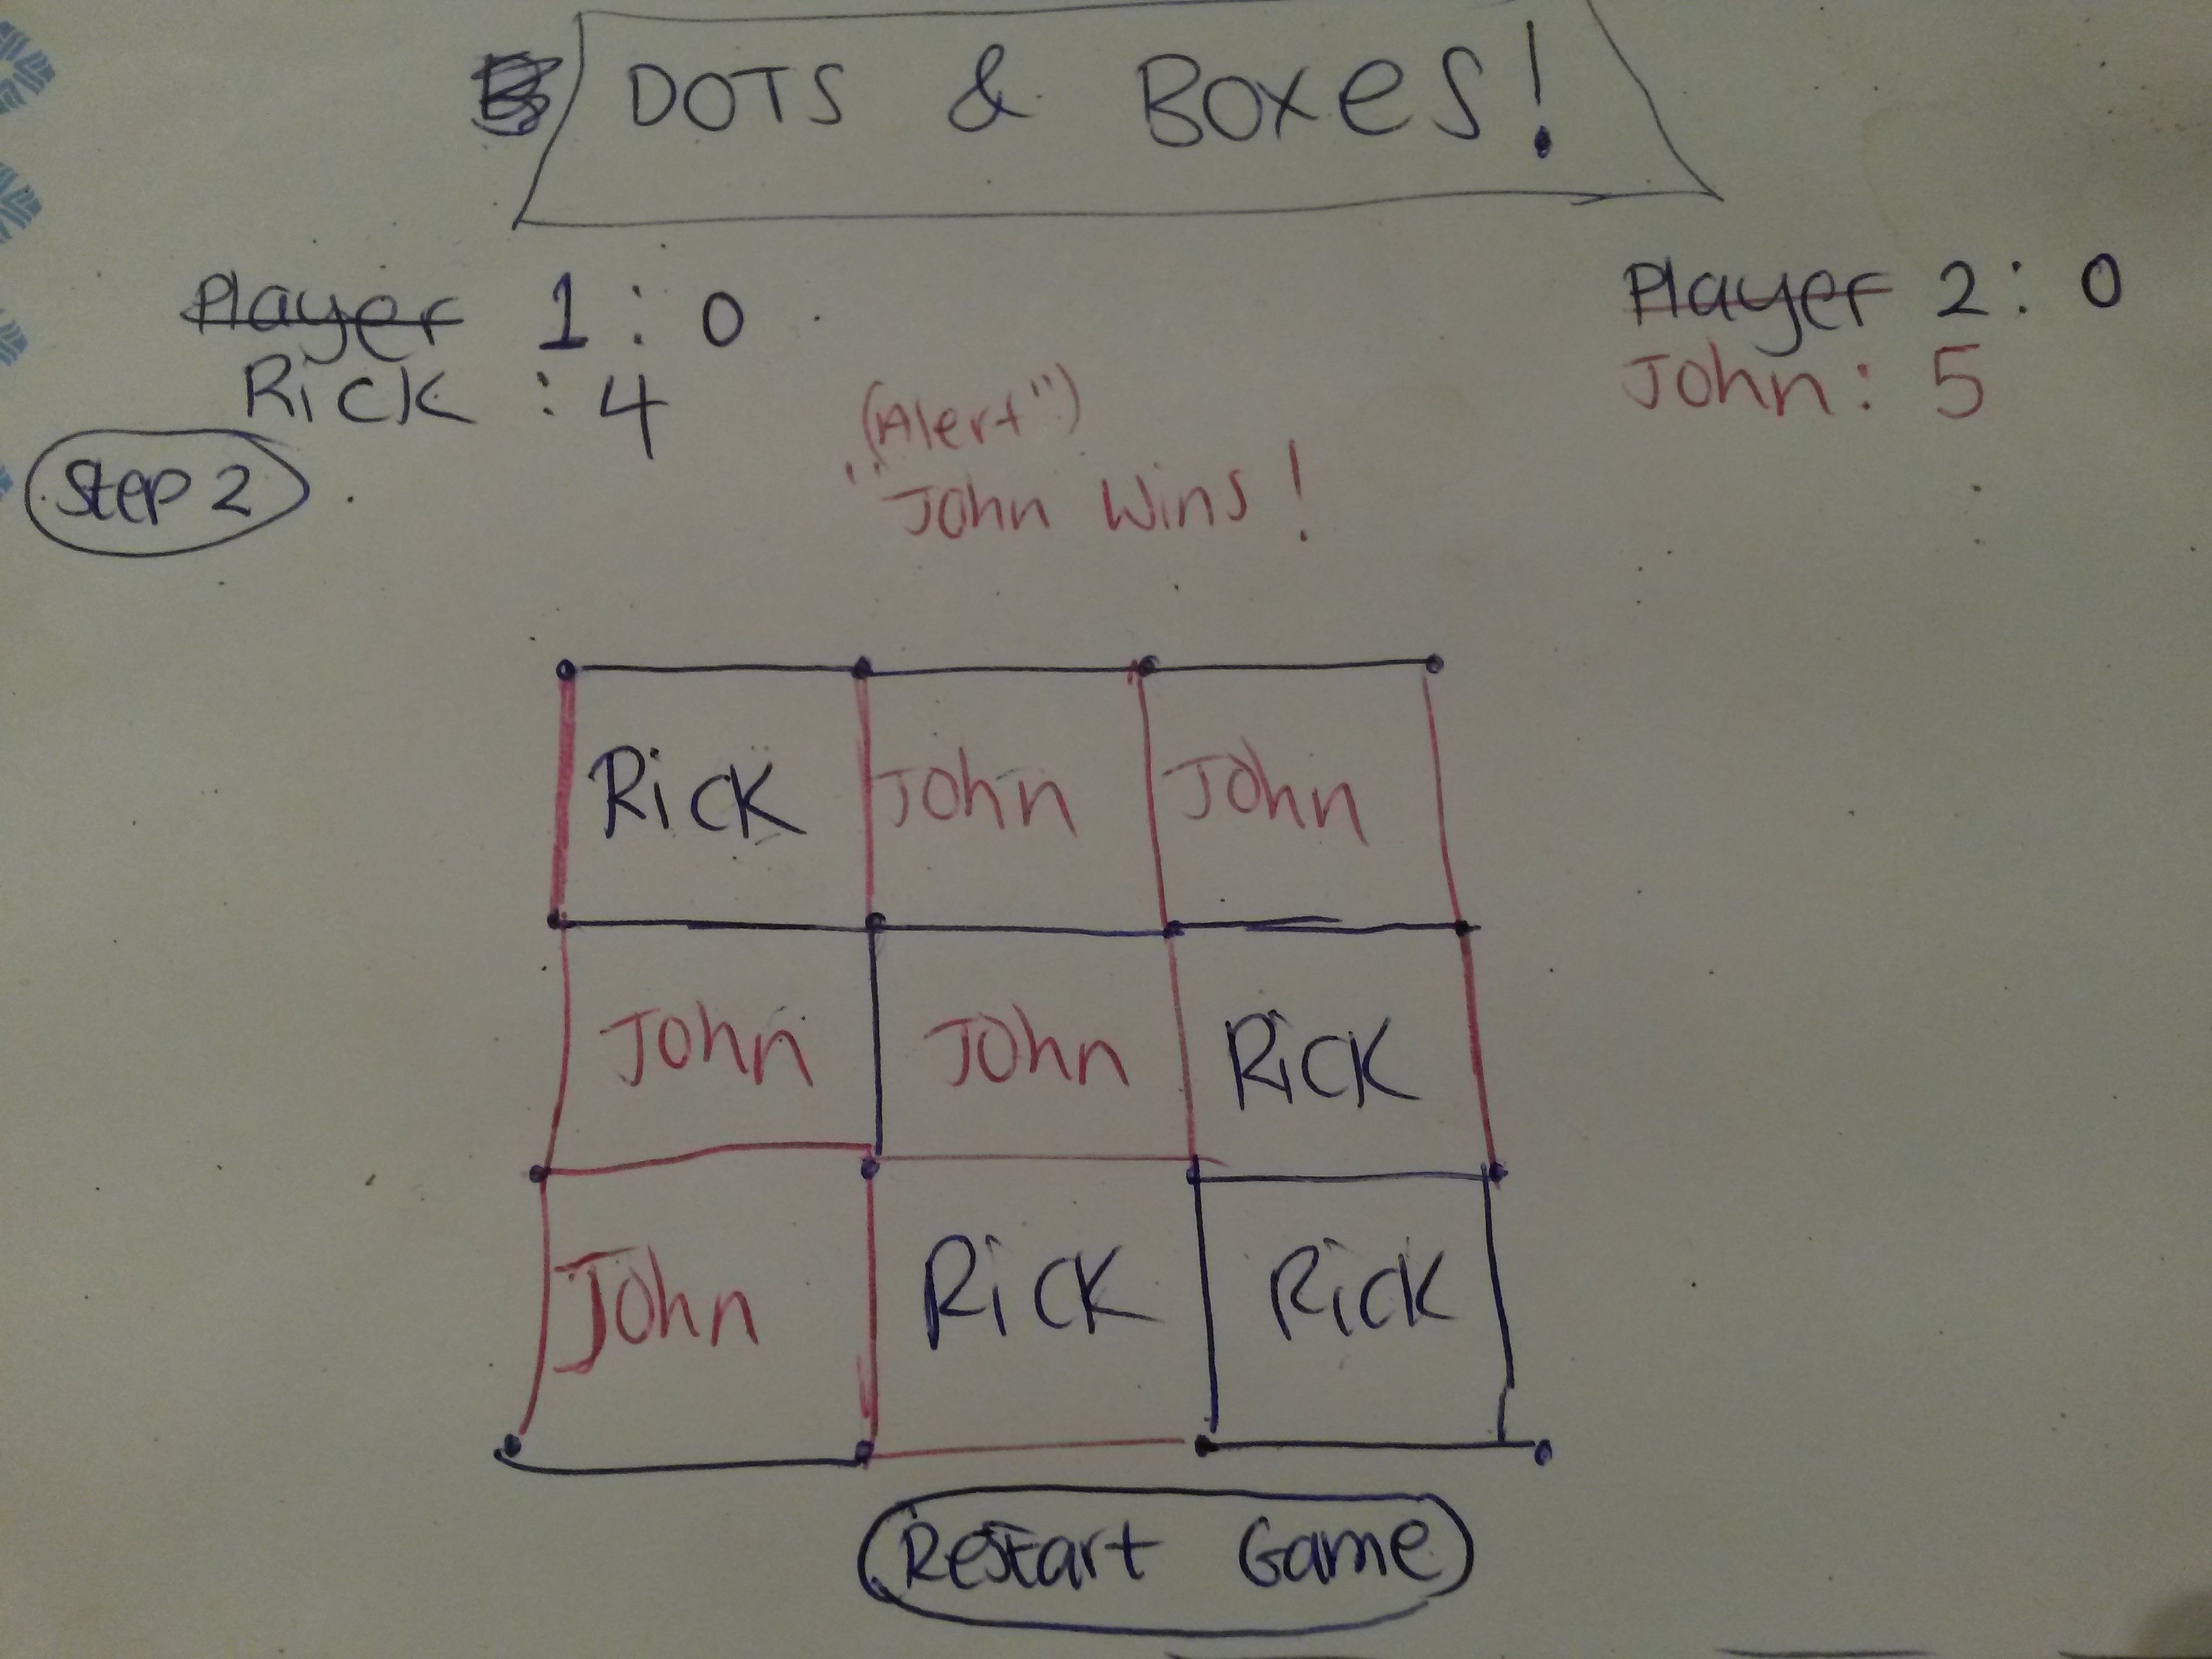 DOTS & BOXES!
Player 1 : 0
Player 2 : 0
Rick : 4
John : 5
Step 2
(Alert")
John Wins!
Rick John John
John John Rick
John Rick Rick
Restart Game